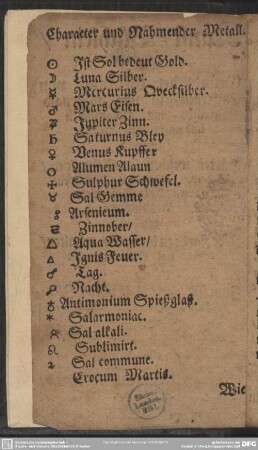 Character und Nahmender Metall.
☉ Ist Sol bedeut Gold.
☽ Luna Silber.
☿ Mercurius Qvecksilber.
♂ Mars Eisen.
♃ Jupiter Zinn.
♄ Saturnus Bley
♀ Venus Kupffer
Alumen Alaun
Sulphur Schwefel.
Sal Gemme
Arsenicum.
Zinnober/
Aqua Wasser/
△ Ignis Feuer.
Tag.
Nacht.
Antimonium Spießglaß.
* Salarmoniac.
Sal alkali.
Sublimirt.
Sal commune.
Crocum Martis.
Wie